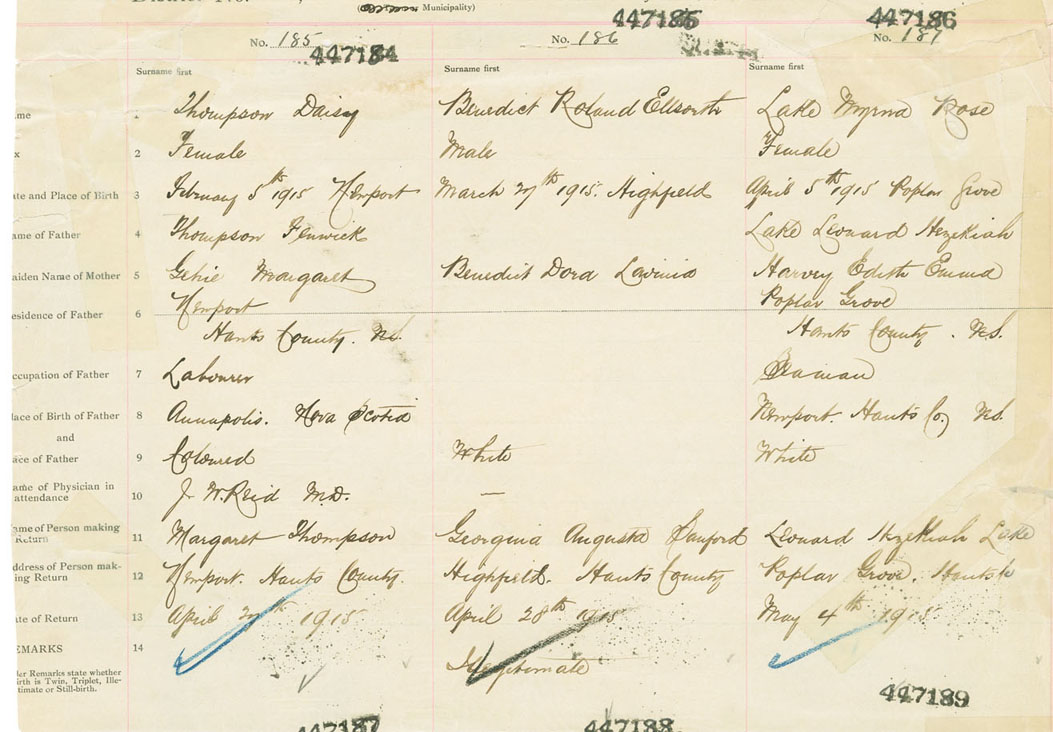 District No.
Municipality)
447185
447186
No. 185
447184
No. 186
No. 187
Surname first
Surname first
Surname first
me
1
Thompson Daisy
Benedict Roland Ellsworth
Lake Myrna Rose
x
2
Female
Male
Female
ate and Place of Birth
3
February 5th 1915 Newport
March 27th 1915. Highfield
April 5th 1915 Poplar Grove
ame of Father
4
Thompson Fenwick
Lake Leonard Hezekiah
aiden Name of Mother
5
Margaret
Benedict Dora Lavinia
Harvey Edith Emma
esidence of Father
6
Newport
Hants County. N.S.
Poplar Grove
Hants County. N.S.
ccupation of Father
7
Labourer
Seaman
lace of Birth of Father
8
Annapolis. Nova Scotia
Newport. Hants Co, N.S.
and
ace of Father
9
Coloured
White
White
ame of Physician in
attendance
10
J. W. Reid M.D.
—
ame of Person making
Return
11
Margaret Thompson
Georgina Augusta Sanford
Leonard Hezekiah Lake
ddress of Person mak-
ing Return
12
Newport. Hants County.
Highfield. Hants County
Poplar Grove. Hants
te of Return
13
April 1915
April 28th 1915
May 4th 1915
EMARKS
14
Illegitimate
der Remarks state whether
irth is Twin, Triplet, Ille-
timate or Still-birth.
447187
447188
447189